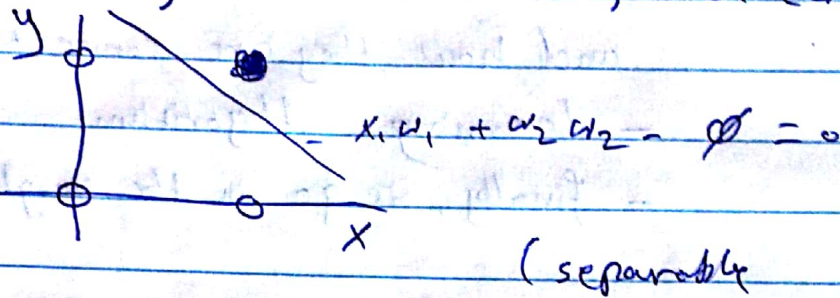 y
x₁ w₁ + w₂ w₂ - φ = 0
x
(separable